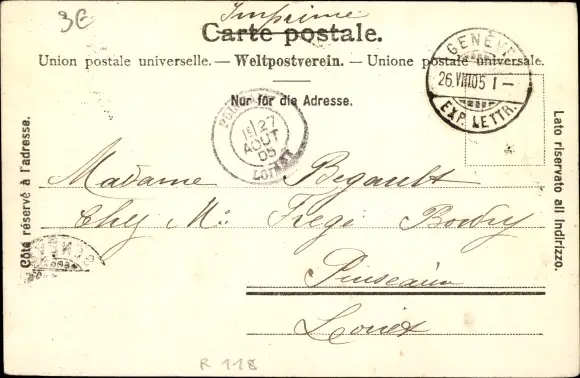 3€
Imprimé
Carte postale.
Union postale universelle. — Weltpostverein. — Unione postale universale.
Nur für die Adresse.
GENÈVE
26.VIII.05 I –
EXP. LETTR.
1E/27
AOUT
05
LOIRET
Côté réservé à l'adresse.
Lato riservato all indirizzo.
Madame Begault
Chez Mr
Puiseaux
Loiret
R 118